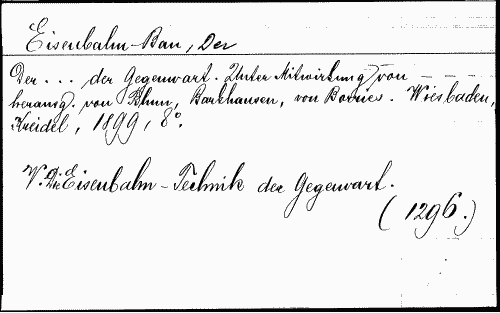 Eisenbahn-Bau, Der
Der . . . der Gegenwart. Unter Mitwirkung von — — — —
herausg. von Blum, Barkhausen, von Borries. Wiesbaden,
Kreidel, 1899, 8°.
V. Die Eisenbahn-Technik der Gegenwart.
(1296.)